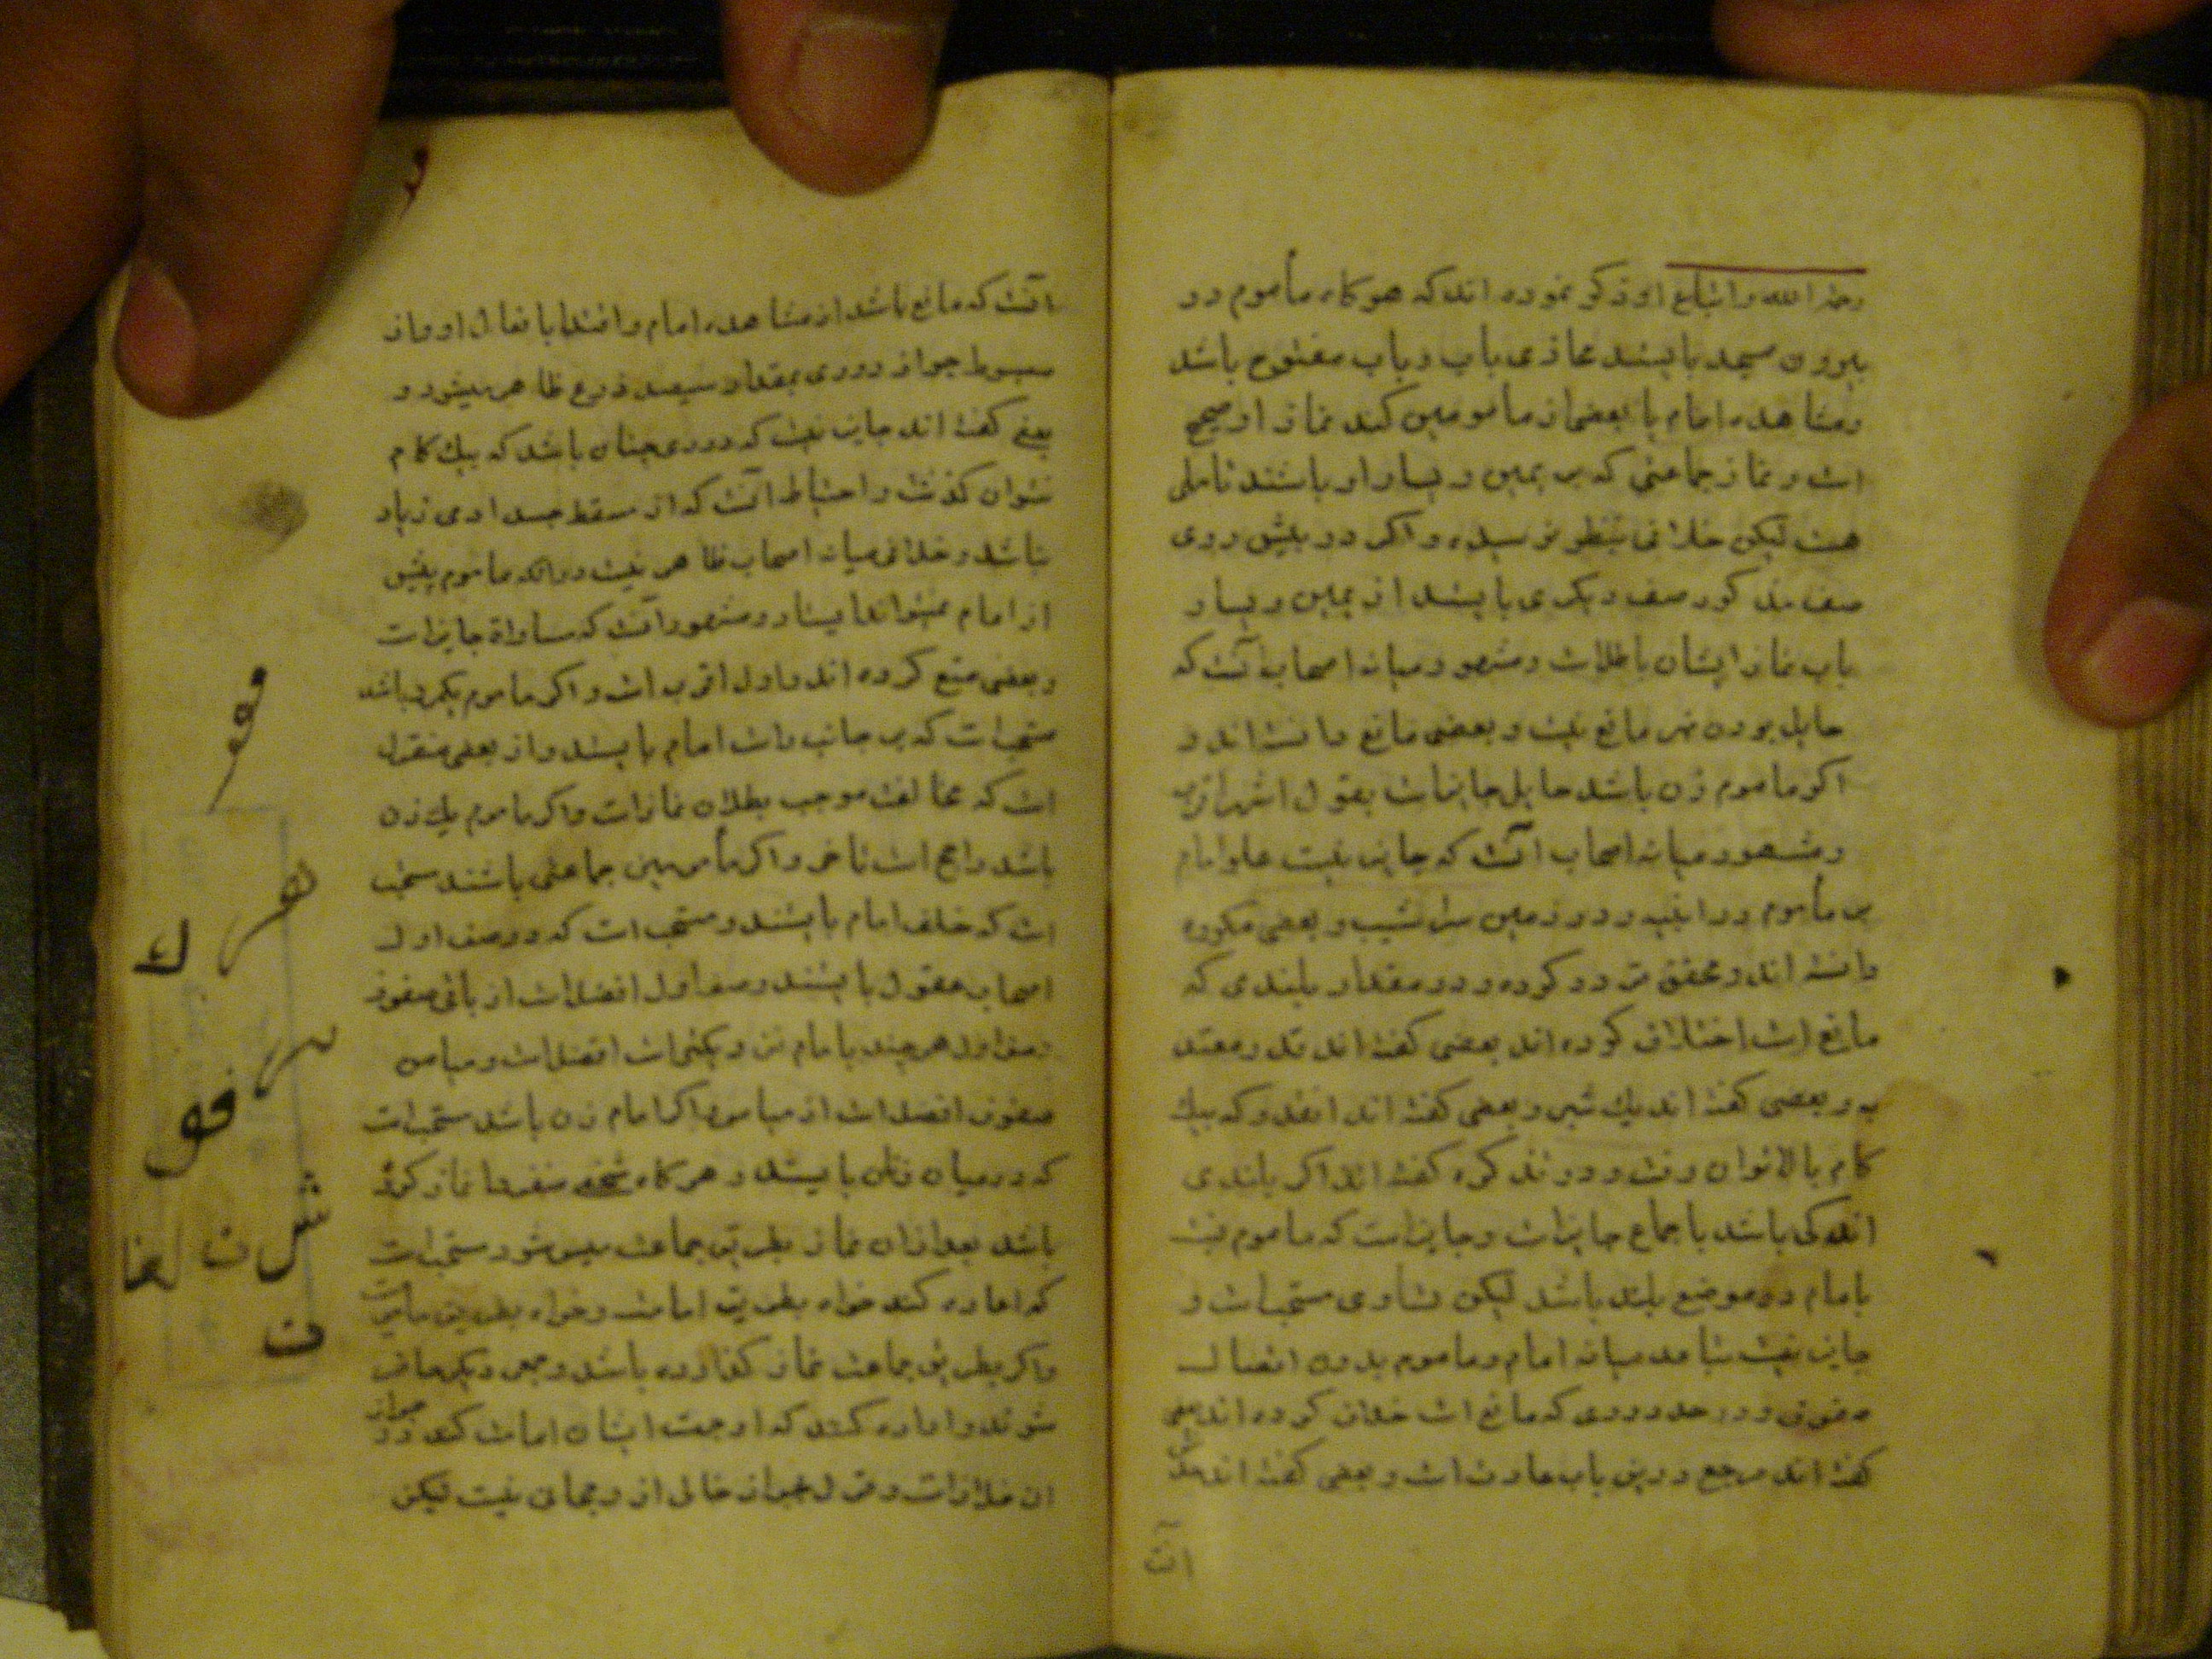 رحمه الله واتباع او ذکر نموده اند که هرکاه مأموم در
بیرون مسجد بایستد محاذی باب و باب مفتوح باشد
ومشاهده امام یا بعضی از مأمومین کند نماز او صحیح
است و نماز جماعتی که بر یمین و یسار او باشند تاملی
هست لیکن خلافی بنظر نرسیده و اکر در پیش روی
صف مذکور صف دیکری بایستد از یمین و یسار
باب نماز ایشان باطلست ومشهور میانه اصحاب آنست که
حایل بودن نهر مانع نیست و بعضی مانع دانسته اند و
اکر ماموم زن باشد حایل جایز است بقول اشهر اقرب
ومشهور میانه اصحاب آنست که جایز نیست علو امام
بر مأموم در ابنیه و در زمین سراشیب و بعضی مکروه
دانسته اند و محقق تردد کرده و در مقدار بلندی که
مانع است اختلاف کرده اند بعضی کفته اند قدر معتد
به و بعضی کفته اند یك شبر و بعضی کفته اند انقدر که بیك
کام بالا نتوان رفت و در تذکره کفته اند اکر بلندی
اندکی باشد باجماع جایز است و جایز است که ماموم نسبت
بامام در موضع بلند باشد لیکن تساوی مستحب است و
جایز نیست تباعد میانه امام و ماموم بدون اتصال
صفوف و در حد دوری که مانع است خلاف کرده اند بعضی
کفته اند مرجع درین باب عادت است و بعضی کفته اند
آنست
آنست که مانع باشد از مشاهده امام و اقتدا بافعال او و از
مبسوط جواز دوری بمقدار سیصد ذرع ظاهر میشود و
بعضی کفته اند جایز نیست که دوری چنان باشد که بیك کام
نتوان کذشت و احتیاط آنست که از مسقط جسد ادمی زیاد
نباشد و خلافی میانه اصحاب ظاهر نیست در انکه ماموم پیش
از امام نمیتواند ایستاد و مشهور آنست که مساواة جایز است
و بعضی منع کرده اند و اول اقرب است و اکر ماموم یکمرد باشد
مستحب است که بر جانب راست امام بایستد و از بعضی منقول
است که مخالفت موجب بطلان نماز است و اکر ماموم یك زن
باشد راجح است تاخر و اکر مأمومین جماعتی باشند مستحب
است که خلف امام بایستند و مستحب است که در صف اول
اصحاب عقول بایستند و صف اول افضل است از باقی صفوف
وصف اول هر چند بامام نزدیکتر است افضل است و میامن
صفوف افضل است از میاسر و اکر امام زن باشد مستحب است
که در میان زنان بایستد و هرکاه شخصی منفردا نماز کرده
باشد بعد از ان نماز بطریق جماعت میسر شود مستحب است
که اعاده کند خواه بطریق امامت و خواه بطریق مأمومیت
واکر بطریق جماعت نماز کذارده باشد و جمعی دیکر حاضر
شوند و اراده کنند که او جهت ایشان امامت کند در جواز
ان خلاف است و قول بجواز خالی از رجحانی نیست لیکن
ك
ت